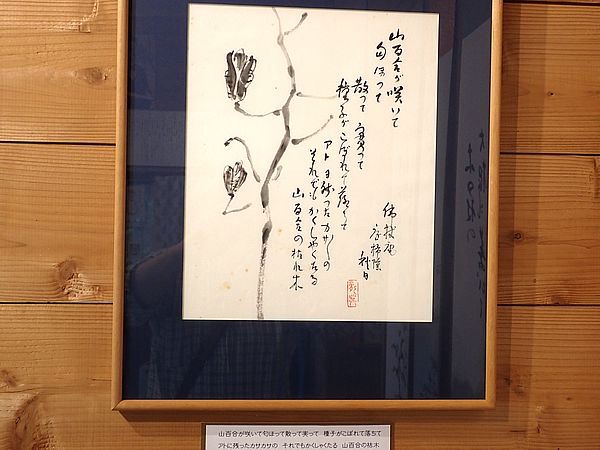 山百合が咲いて
匂ほって
散って 実って
種子がこぼれて落ちて
アトに残ったカサ〱の
それでもかくしゃくたる
山百合の枯れ木
山百合が咲いて匂ほって散って実って 種子がこぼれて落ちて
アトに残ったカサカサの それでもかくしゃくたる 山百合の枯木